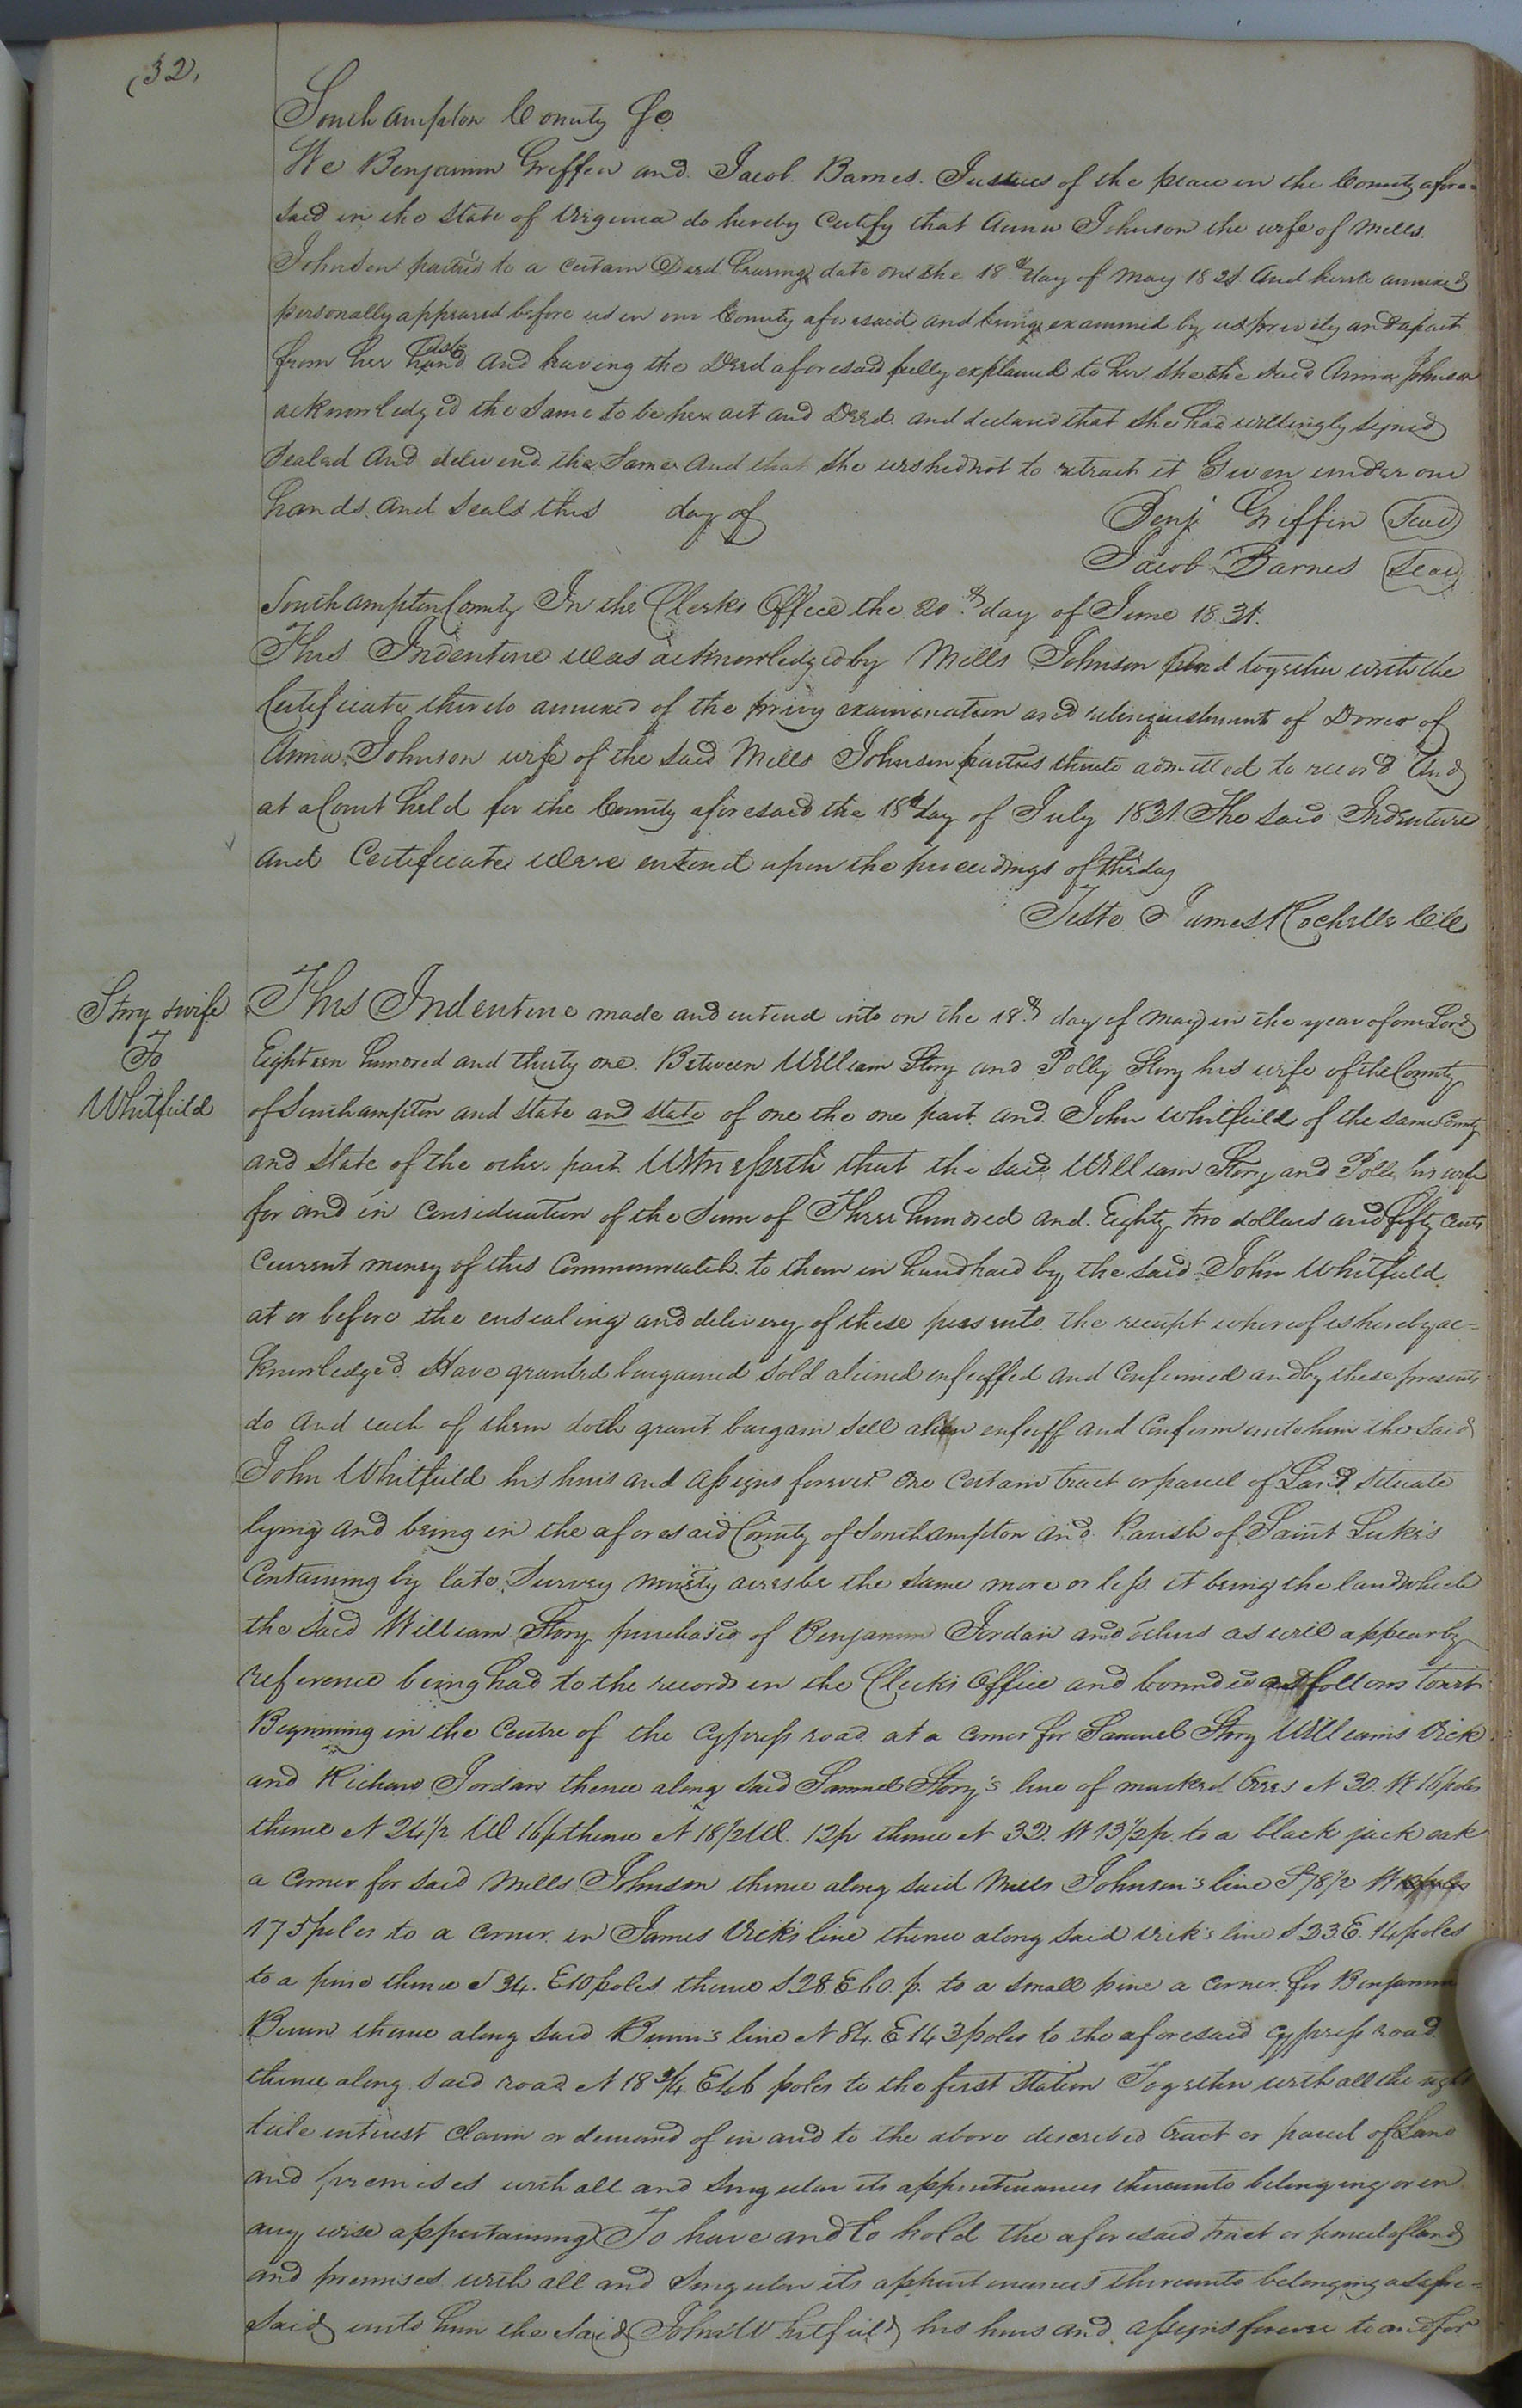 (32,
Southampton County Sc
We Benjamin Griffin and Jacob Barnes Justices of the peace in the County afore=
said in the State of Virginia do hereby Certify that Anna Johnson the wife of Mills
Johnson parties to a certain Deed bearing date on the 18th day of May 1831 And hereto annexed
personally appeared before us in our County aforesaid and being examined by us privily and apart
from her husband And having the Deed aforesaid fully explained to her she the said Anna Johnson
acknowledged the Same to be her act and Deed and declared that she had willingly signed
Sealed And delivered the Same And that she wished not to retract it Given under our
hands And Seals this day of Benj Griffin Seal
Jacob Barnes Seal
Southampton County In the Clerks Office the 20th day of June 1831.
This Indenture was acknowledged by Mills Johnson And together with the
Certificate thereto annexed of the privy examination and relinquishment of Dower of
Anna Johnson wife of the said Mills Johnson parties thereto admitted to record And
at a Court held for the County aforesaid the 18th day of July 1831 The said Indenture
And Certificate were entered upon the proceedings of the day
Teste James Rochelle C.C.
Story & wife
To
Whitfield
This Indenture made and entered into on the 18th day of May in the year of our Lord
Eighteen hundred and thirty one. Between William Story and Polly Story his wife of the County
of Southampton and state and state of one the one part and John Whitfield of the same County
and State of the other part Witnesseth that the said William Story and Polly his wife
for and in Consideration of the Sum of Three hundred and Eighty two dollars and fifty Cents
Current money of this Commonwealth to them in hand paid by the said John Whitfield
at or before the ensealing and delivery of these presents the receipt whereof is hereby ac=
knowledged Have granted bargained sold aliened enfeoffed and Confirmed and by these presents
do And each of them doth grant bargain sell alien enfeoff and Confirm unto him the said
John Whitfield his heirs and assigns forever One Certain tract or parcel of Land Situate
lying and being in the aforesaid County of Southampton and Parish of Saint Luke's
Containing by late Survey ninety acres be the same more or less it being the land which
the said William Story purchased of Benjamin Jordan and others as will appear by
reference being had to the records in the Clerks Office and bounded as follows towit
Beginning in the Centre of the Cypress road at a corner for Samuel Story Williams Vick
and Richard Jordan thence along said Samuel Story's line of marked trees N 30. W 16 poles
thence N 24½ W 16p thence N 18½ W. 12p thence N 32. W 13½ p. to a black jack oak
a Corner for said Mills Johnson thence along said Mills Johnson's line S 78½ W
175 poles to a corner in James Vick's line thence along said Vick's line S 23. E. 14 poles
to a pine thence S 34. E 10 poles thence S 28. E 60. p. to a small pine a corner for Benjamin
Bunn thence along said Bunn's line N 84. E 143 poles to the aforesaid Cypress road
thence along said road N 18¾ E 46 poles to the first Station Together with all the right
title interest Claim or demand of in and to the above described tract or parcel of Land
and premises with all and Singular its appurtenances thereunto belonging or in
any wise appertaining To have and to hold the aforesaid tract or parcel of land
and premises with all and Singular its appurtenances thereunto belonging as afore=
said unto him the said John Whitfield his heirs and assigns forever to and for